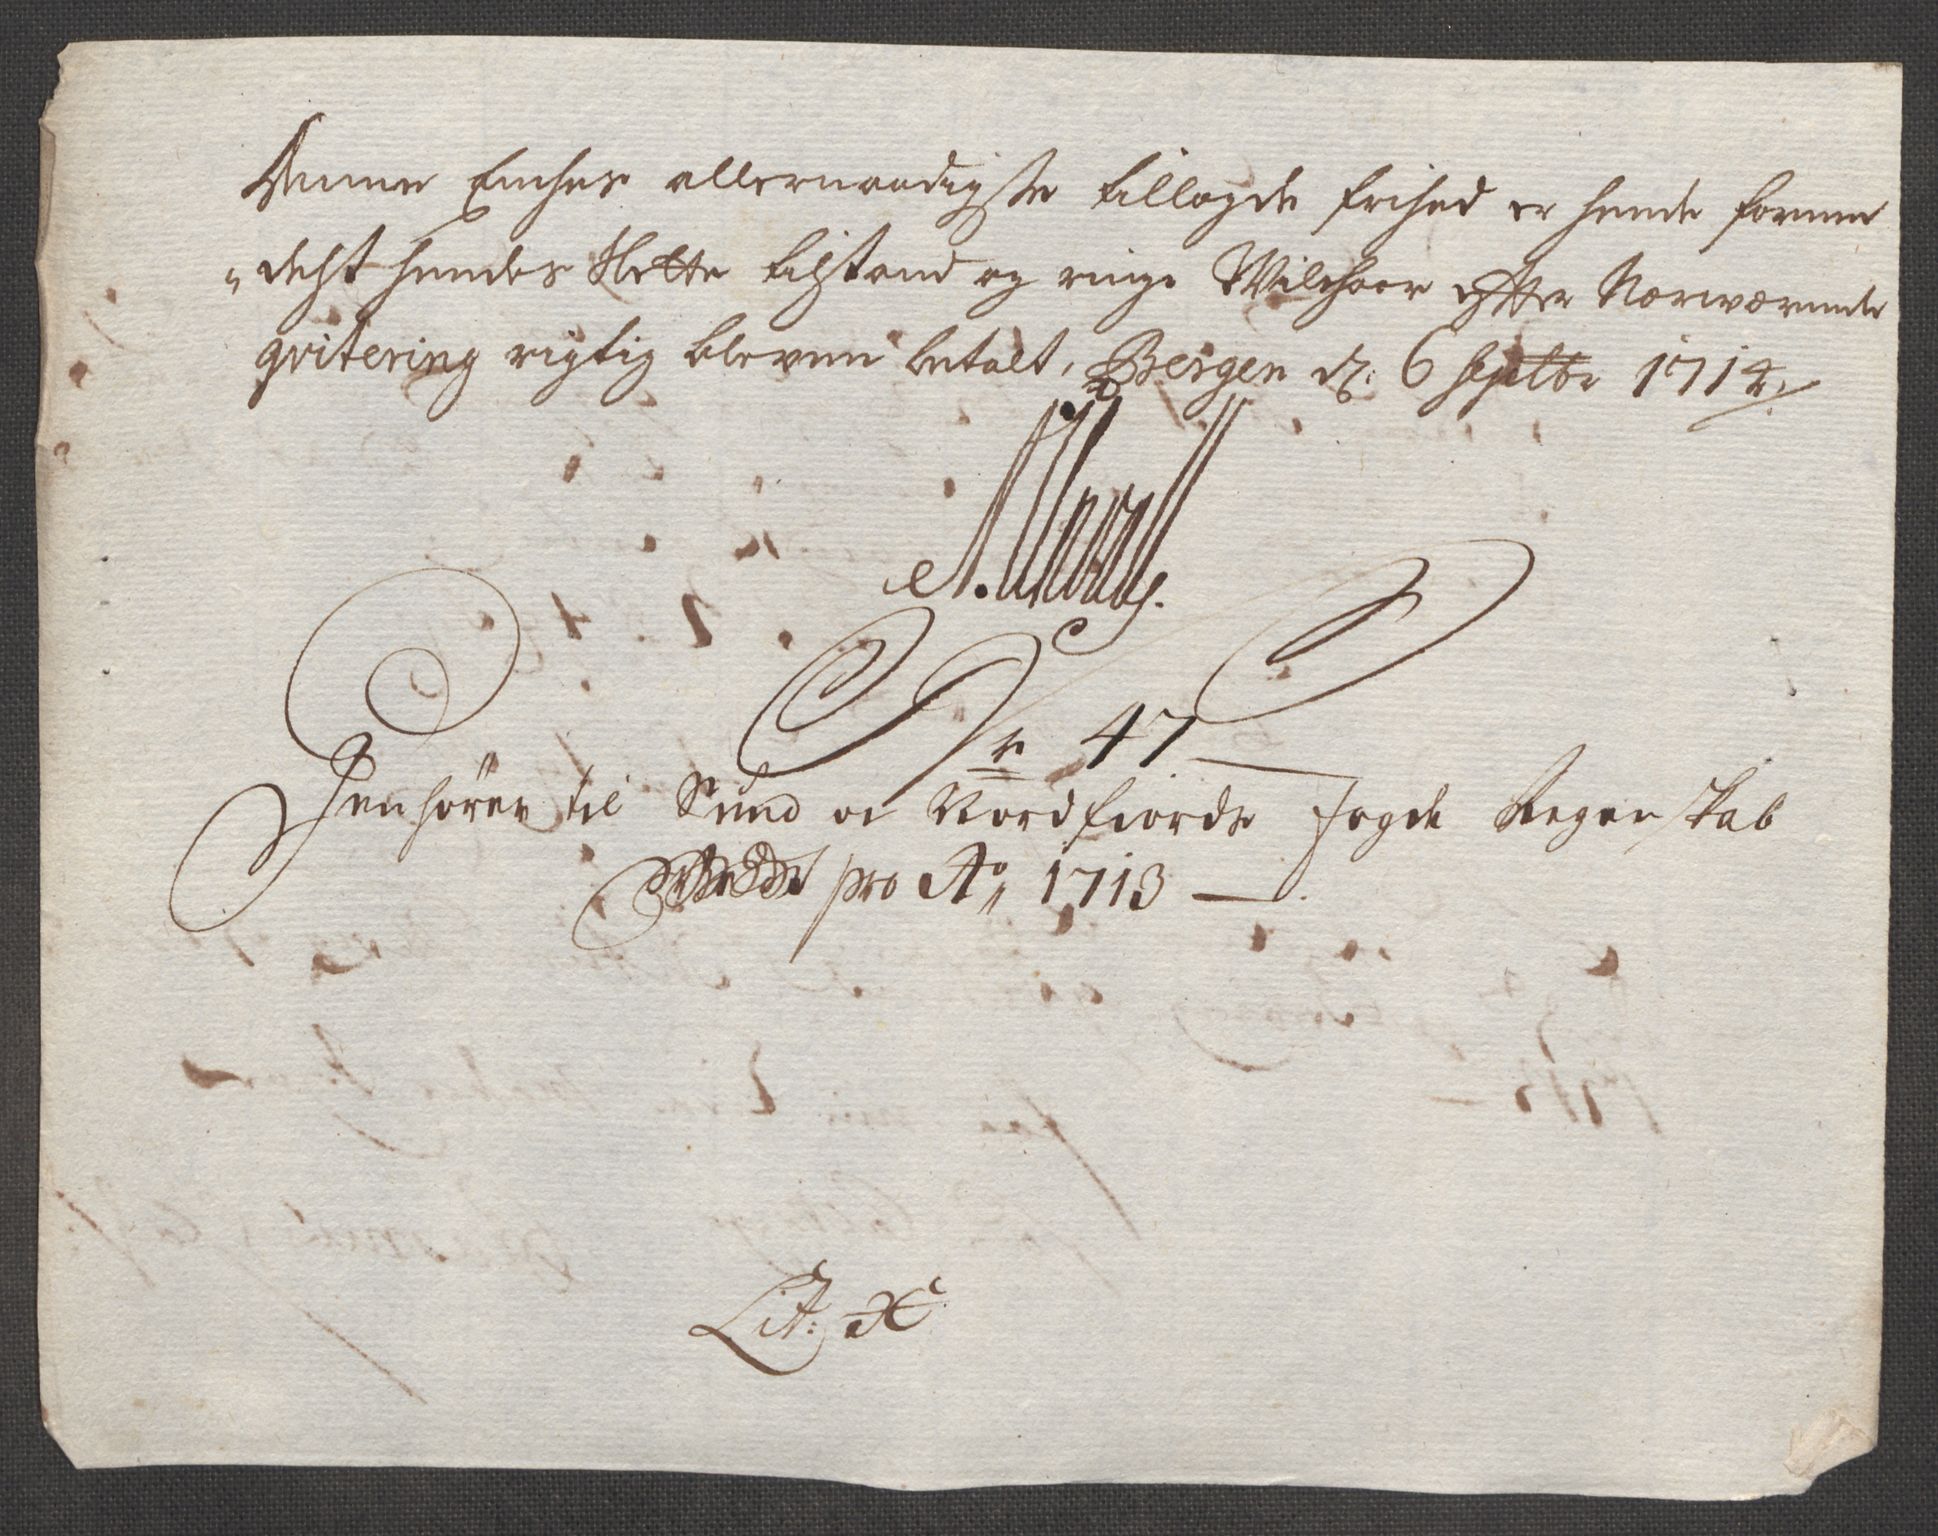 Denne Enches allernaadigste tillagde frihed er hende forme
„delst hendes slette tilstand og ringe Wilchaar efter Nærværende
qvitering rigtig bleven betalt, Bergen d: 6 Septbr 1714
N 47
Henhörer til Sund oc Nordfiords fogde Regenskab
pro Ao 1713
Lit: X